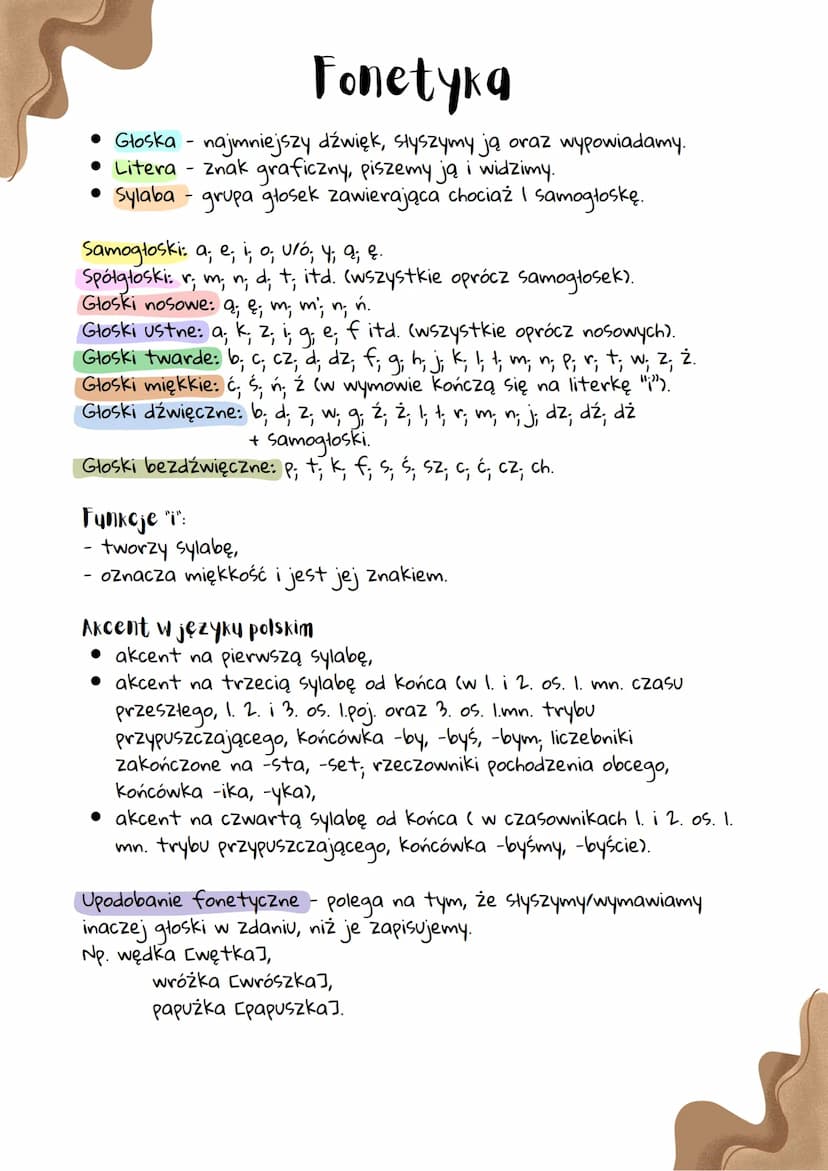 Fonetyka
• Głoska - najmniejszy dźwięk, słyszymy ją oraz wypowiadamy.
• Litera - znak graficzny, piszemy ją i widzimy.
• Sylaba - grupa głosek zawierająca chociaż 1 samogłoskę.
Samogłoski: a; e; i; o; u/ó; y; ą; ę.
Spółgłoski: r; m; n; d; t; itd. (wszystkie oprócz samogłosek).
Głoski nosowe: ą; ę; m; m'; n; ń.
Głoski ustne: a; k; z; i; g; e; f itd. (wszystkie oprócz nosowych).
Głoski twarde: b; c; cz; d; dz; f; g; h; j; k; l; ł; m; n; p; r; t; w; z; ż.
Głoski miękkie: ć; ś; ń; ź (w wymowie kończą się na literkę "i").
Głoski dźwięczne: b; d; z; w; g; ź; ż; l; ł; r; m; n; j; dz; dź; dż
+ samogłoski.
Głoski bezdźwięczne: p; t; k; f; s; ś; sz; c; ć; cz; ch.
Funkcje "i":
- tworzy sylabę,
- oznacza miękkość i jest jej znakiem.
Akcent w języku polskim
• akcent na pierwszą sylabę,
• akcent na trzecią sylabę od końca (w 1. i 2. os. l. mn. czasu
przeszłego, 1. 2. i 3. os. l.poj. oraz 3. os. l.mn. trybu
przypuszczającego, końcówka -by, -byś, -bym; liczebniki
zakończone na -sta, -set; rzeczowniki pochodzenia obcego,
końcówka -ika, -yka),
• akcent na czwartą sylabę od końca ( w czasownikach 1. i 2. os. l.
mn. trybu przypuszczającego, końcówka -byśmy, -byście).
Upodobanie fonetyczne - polega na tym, że słyszymy/wymawiamy
inaczej głoski w zdaniu, niż je zapisujemy.
Np. wędka [wętka],
wróżka [wrószka],
papużka [papuszka].